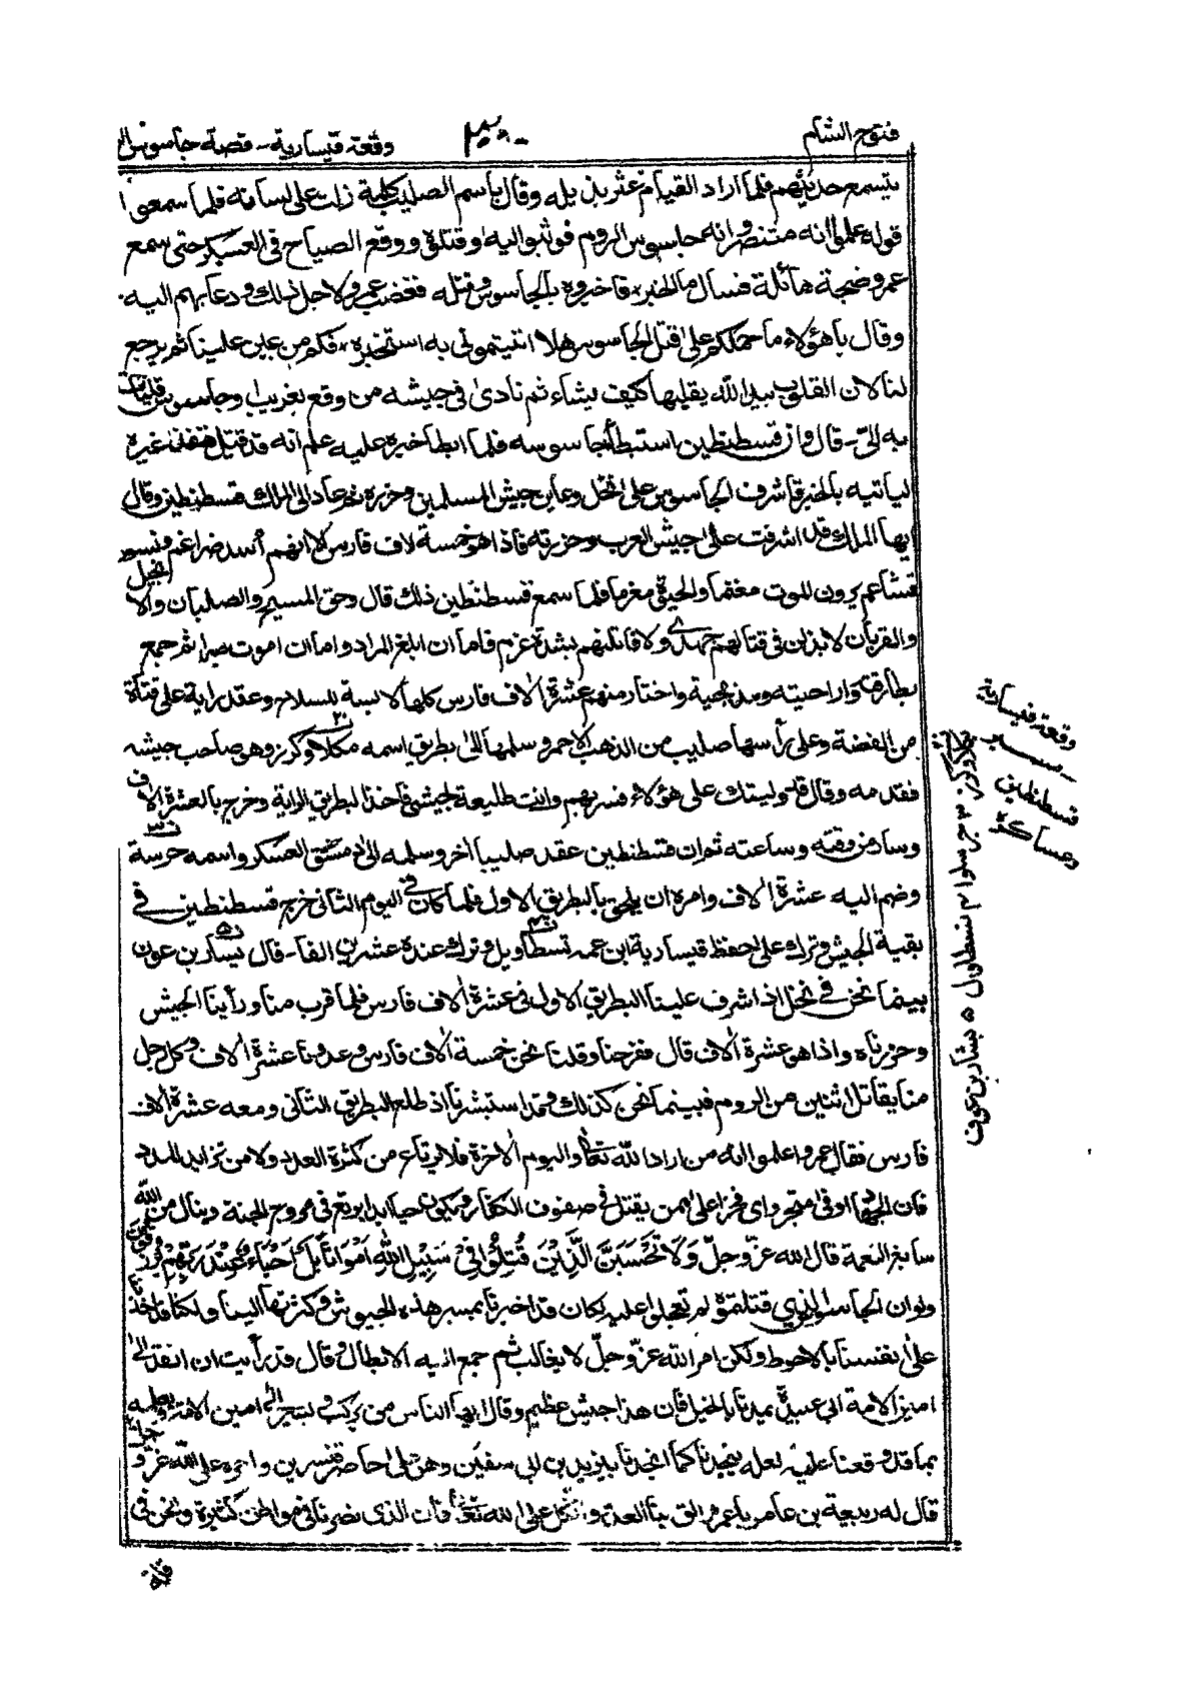 فتوح الشام
وقعة قيسارية - قصة جاسوس ال
يتسمع حديثهم فلما اراد القيام عثر بذيله وقال باسم الصليب كلمة زلت على لسانه فلما سمعوا
قوله علموا انه متنصر وانه جاسوس الروم فوثبوا اليه وقتلوه ووقع الصياح فى العسكر حتى سمع
عمرو ضجة هائلة فسال ما الخبر فاخبروه بالجاسوس وقتله فغضب عمرو لاجل ذلك ودعا بهم اليه
وقال ياهؤلاء ما حملكم على قتل الجاسوس هلا اتيتمونى به استخبره فكم من عين علينا ثم يرجع
لنا لان القلوب بيد الله يقلبها كيف يشاء ثم نادى فى جيشه من وقع بغريب او جاسوس فليات
به الىّ - قال وان قسطنطين استبطأ جاسوسه فلما ابطا خبره عليه علم انه قد قتل فنفذ غيره
لياتيه بالخبر فاشرف الجاسوس على النخل وعاين جيش المسلمين وحزره ثم عاد الى الملك قسطنطين وقال
ايها الملك قد اشرفت على جيش العرب وحزرته فاذا هو خمسة الاف فارس الا انهم أسد ضراغم ونسور
قشاعم يرون الموت مغنما والحيوة مغرما فلما سمع قسطنطين ذلك قال وحق المسيح والصلبان والانجيل
والقربان لابذلن فى قتالهم جهدى ولاقاتلنهم بشدة عزم فاما ان ابلغ المراد واما ان اموت صبرا ثم جمع
بطارقه واراحيته ومذبحية واختار منهم عشرة الاف فارس كلها لابسة للسلاح وعقد راية على قناة
من الفضة وعلى رأسها صليب من الذهب الاحمر وسلمها الى بطريق اسمه مكلاوكرز وهو صاحب جيشه
فقدمه وقال قد وليتك على هؤلاء فسر بهم وانت طليعة لجيشى فاخذ البطريق الراية وخرج بالعشرة الاف
وسار من وقته وساعته ثم ان قسطنطين عقد صليبا اخر وسلمه الى دمستق العسكر واسمه جرسة
وضم اليه عشرة الاف وامره ان يلحق بالبطريق الاول فلما كان فى اليوم الثانى خرج قسطنطين فى
بقية الجيش وترك على حفظ قيسارية ابن عمه قسطاويل وترك عنده عشرين الفا - قال يسار بن عون
بينما نحن فى نخل اذ اشرف علينا البطريق الاول فى عشرة الاف فارس فلما قرب منا ورأينا الجيش
وحزرناه واذا هو عشرة الاف قال ففرحنا وقلنا نحن خمسة الاف فارس وعدونا عشرة الاف وكل رجل
منا يقاتل اثنين من الروم فبينما نحن كذلك وقد استبشرنا اذ طلع البطريق الثانى ومعه عشرة الاف
فارس فقال عمرو اعلموا انه من اراد الله تعالى واليوم الاخرة فلا يرتاع من كثرة العدد ولا من تزايد المدد
فان الجهاد اوفى متجر واى فخر اعلى ممن يقتل فى صفوف الكفار ويكون حيا ابدا يرتع فى مروج الجنة وينال من الله
سابغ النعمة قال الله عزّ وجلّ وَلَا تَحْسَبَنَّ الَّذِيْنَ قُتِلُوْا فِيْ سَبِيْلِ اللهِ اَمْوَاتًا بَلْ اَحْيَاءٌ عِنْدَ رَبِّهِمْ يُرْزَقُوْنَ
ولو ان الجاسوس الذى قتلتموه لم تعجلوا عليه لكان قد اخبرنا بمسير هذه الجيوش وكثرتها الينا ولكنا قد اخذنا
على انفسنا بالاحوط ولكن امر الله عزّ وجلّ لا يغالب ثم جمع اليه الابطال وقال قد رأيت ان انفذ الى
امين الامة ابى عبيدة يمدنا بالخيل فان هذا جيش عظيم وقال ايها الناس من يركب ويسير الى امين الامة ويعلمه
بما قد وقعنا عليه لعله ينجدنا كما انجدنا بيزيد بن ابى سفين وهو على حاضر قنسرين واجره على الله عزّ وجلّ
قال له ربيعة بن عامر يا عمرو الق بنا العدو واتكل على الله تعالى فان الذى نصرنا فى مواطن كثيرة ونحن فى
قلة
وقعة قيسارية
قسطنطين
وعساكره